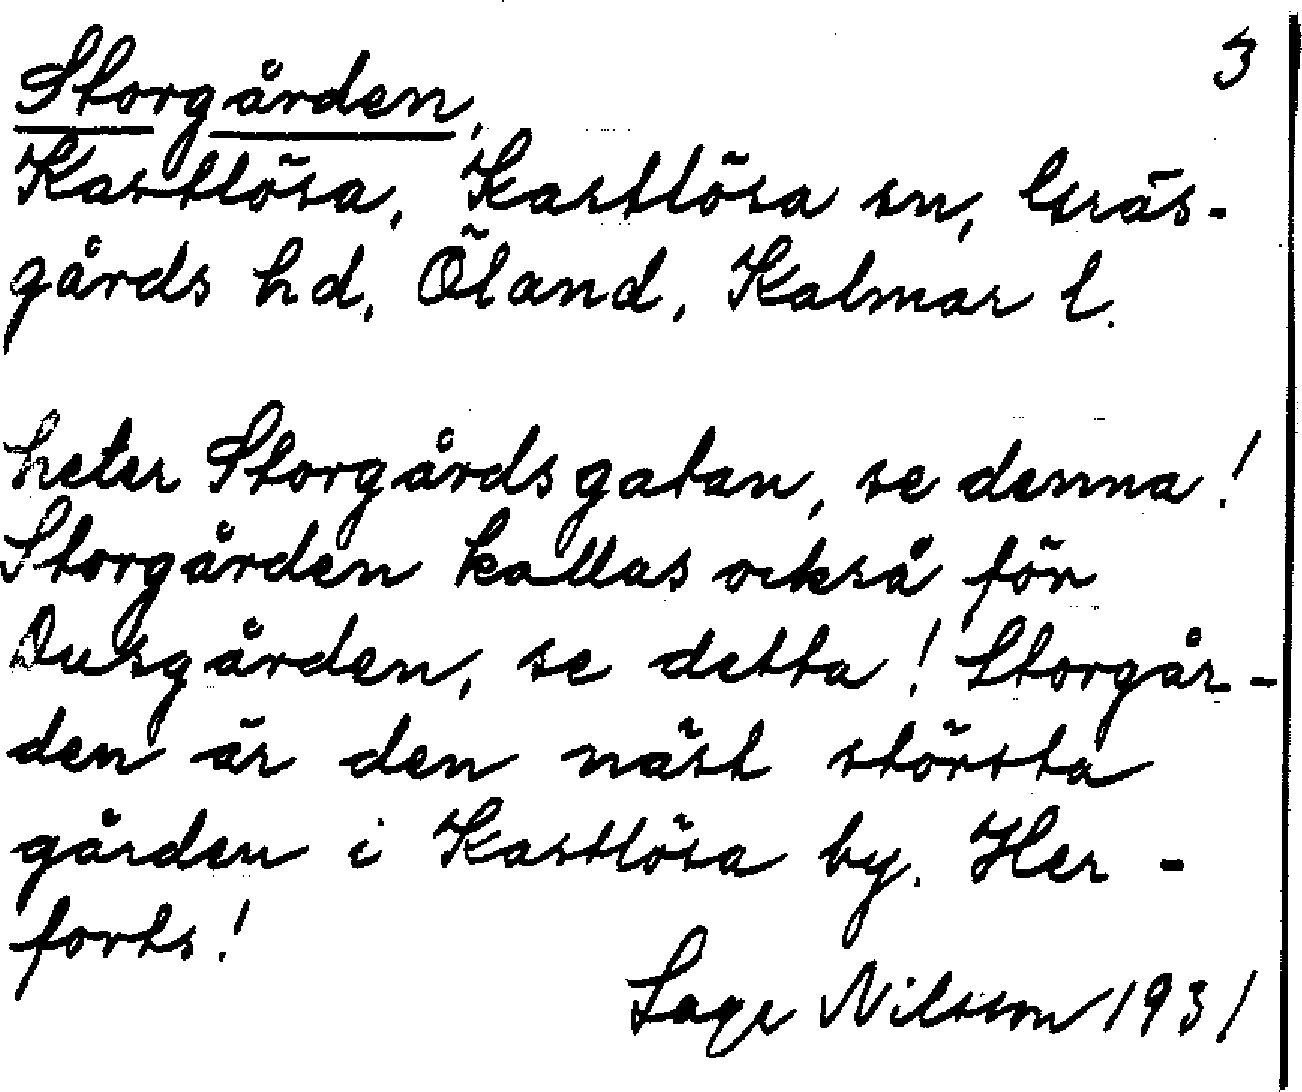 3
Storgården,
Kastlösa, Kastlösa sn, Gräs-
gårds hd, Öland, Kalmar l.
heter Storgårdsgatan, se denna!
Storgården kallas också för
Dusgården, se detta! Storgår-
den är den näst största
gården i Kastlösa by. Her-
forts!
Sage Nilsson 1931